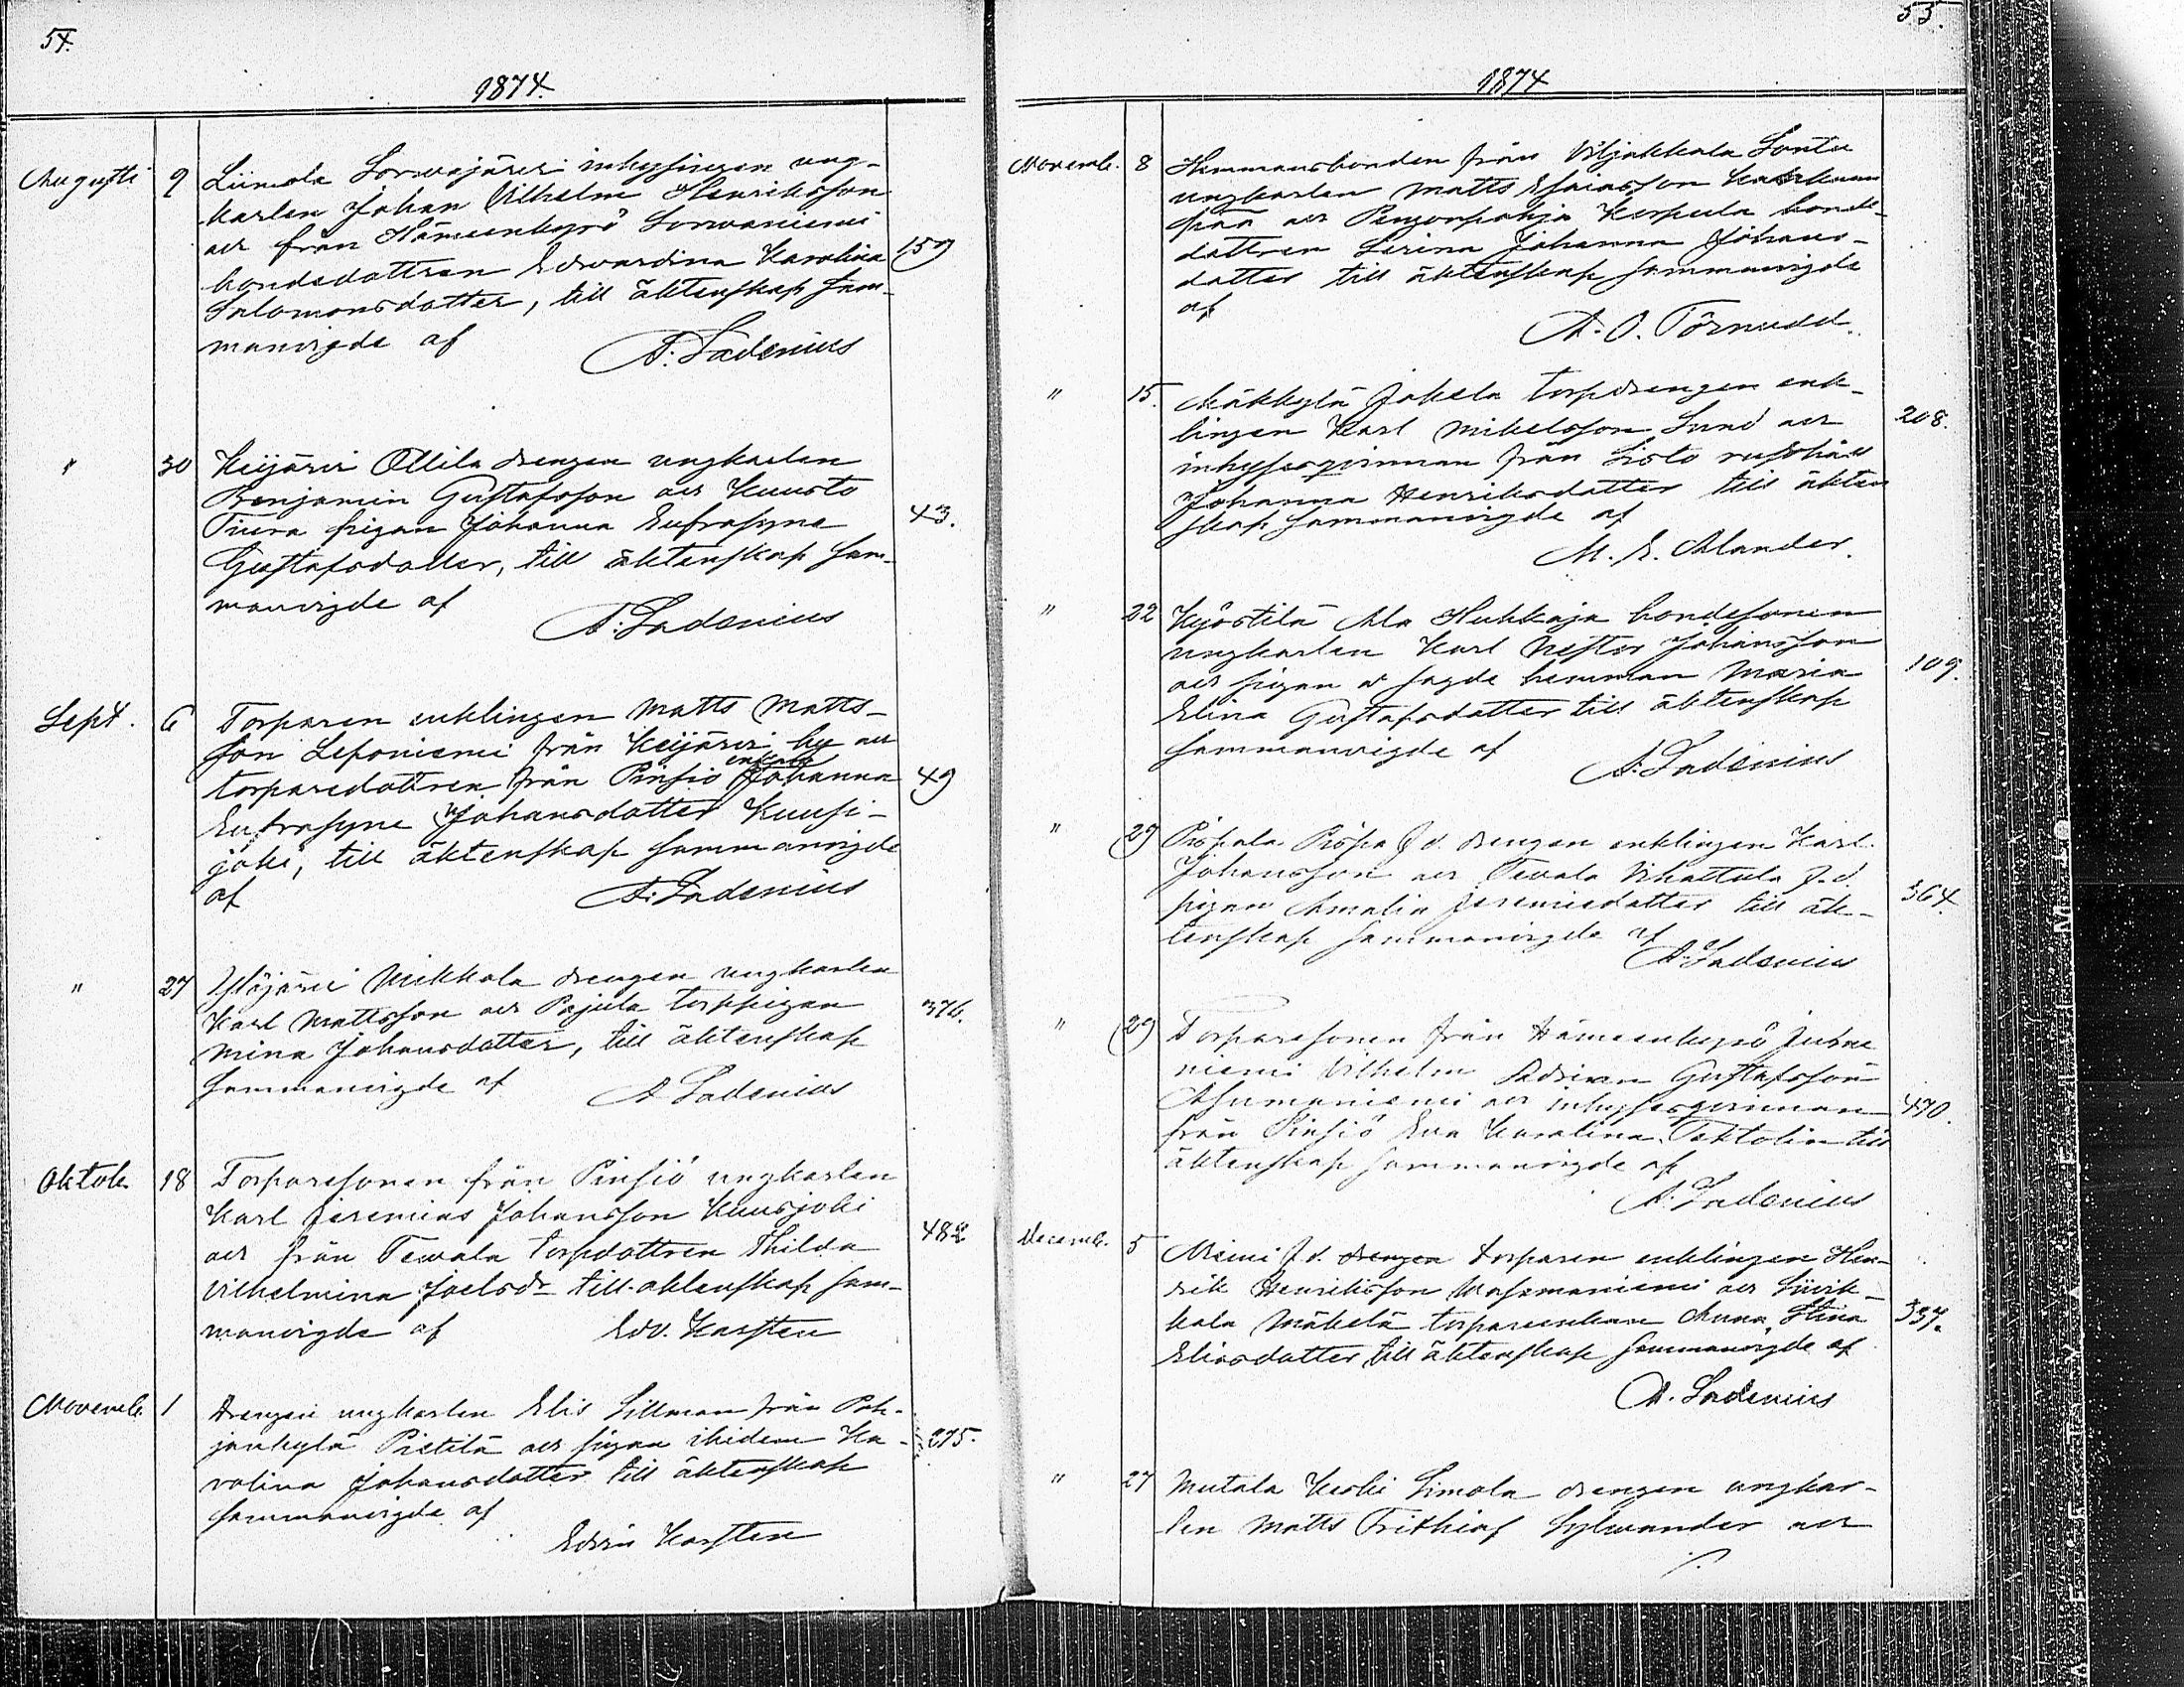 54.
1874.
Augusti 9 Liimola Sorvajärvi inhysingen ung-
karlen Johan Vilhelm Henriksson
och från Hämeenkyrö Sorvaniemi
bondedottren Edvardina Karolina 159
Salomonsdotter, till äktenskap sam-
manvigde af
A. Ladenius
" 30 Keijärvi Ollila drengen ungkarlen
Benjamin Gustafsson och Kuusto
Tiura pigan Johanna Eufrasyne 43.
Gustafsdotter, till äktenskap sam-
manvigde af
A. Ladenius
Sept. 6 Torparen enklingen Matts Matts-
son Leponiemi från Keijärvi by och
enkan
torparedottren från Pinsiö Johanna 49
Eufrasyne Johansdotter Kuusi-
joki, till äktenskap sammanvigde
af A. Ladenius
" 27 Ylöjärvi Mikkola drengen ungkarlen
Karl Mattsson och Pajula torppigan 376.
Mina Johansdotter, till äktenskap
sammanvigde af A Ladenius
Oktob. 18 Torparesonen från Pinsiö ungkarlen
Karl Jeremias Johansson Kuusjoki
och från Tevala torpdottren Thilda 482
Vilhelmina Joelsdr till äktenskap sam-
manvigde af Edv. Karsten
Novemb. 1 Drengen ungkarlen Elis Sillman från Poh-
jankylä Pietilä och pigan ibidem Ka- 275.
rolina Johansdotter till äktenskap
sammanvigde af
Edvin Karsten
55.
1874
Novemb. 8 Hemmansbonden från Viljakkala Sontu
ungkarlen Matts Esaiasson
från och Penzonpohja Kerpula bonde-
dottren Serina Johanna Johans-
dotter till äktenskap sammanvigde
af
A. O. Törnudd.
" 15. Mäkkylä Jokela torpdrengen enk-
lingen Karl Mikelsson Lund och 208.
inhysesqvinnan från Siato rusthåll
Johanna Henriksdotter till äkten
skap sammanvigde af
M. E. Alander.
" 22 Kyöstilä Ala Huhkaja bondesonen
ungkarlen Karl Nestor Johansson
och pigan å sagde hemman Maria 109.
Elina Gustafsdotter till äktenskap
sammanvigde af
A. Ladenius
" 29 Pispala Pispa J. d. drengen enklingen Karl
Johansson och Tevala Vihattula J. d. 364.
pigan Amalia Jeremiedotter till äk-
tenskap sammanvigde af
A. Ladenius
" 29 Torparesonen från Hämeenkyrö Juhna
niemi Vilhelm Adrian Gustafsson
Asumaniemi och inhysesqvinnan 470.
från Pinsiö Eva Karolina Tektolin till
äktenskap sammanvigde af
A. Ladenius
Decemb. 5 Niemi J. d. drengen torparen enklingen Hen-
rik Henriksson Vasamaniemi och Siivik-
kala Mäkelä torpareenkan Anna Stina 337.
Eliasdotter till äktenskap sammanvigde af
A. Ladenius
" 27 Mutala Keski Simola drengen ungkar-
len Matts Frithiof Sylvander och